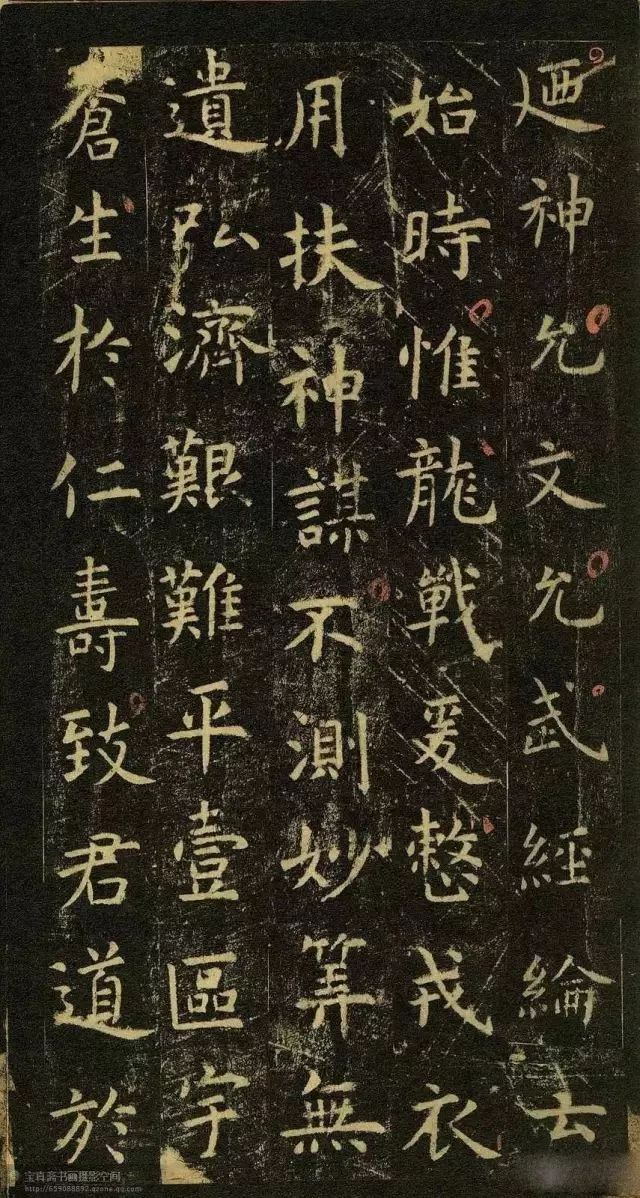 迺神允文允武經綸云
始時惟龍戰爰整戎衣
用扶神謀不測妙筭無
遺弘濟艱難平壹區宇
倉生於仁壽致君道於
宝真斋书画摄影空间
http://659088892.qzone.qq.com/